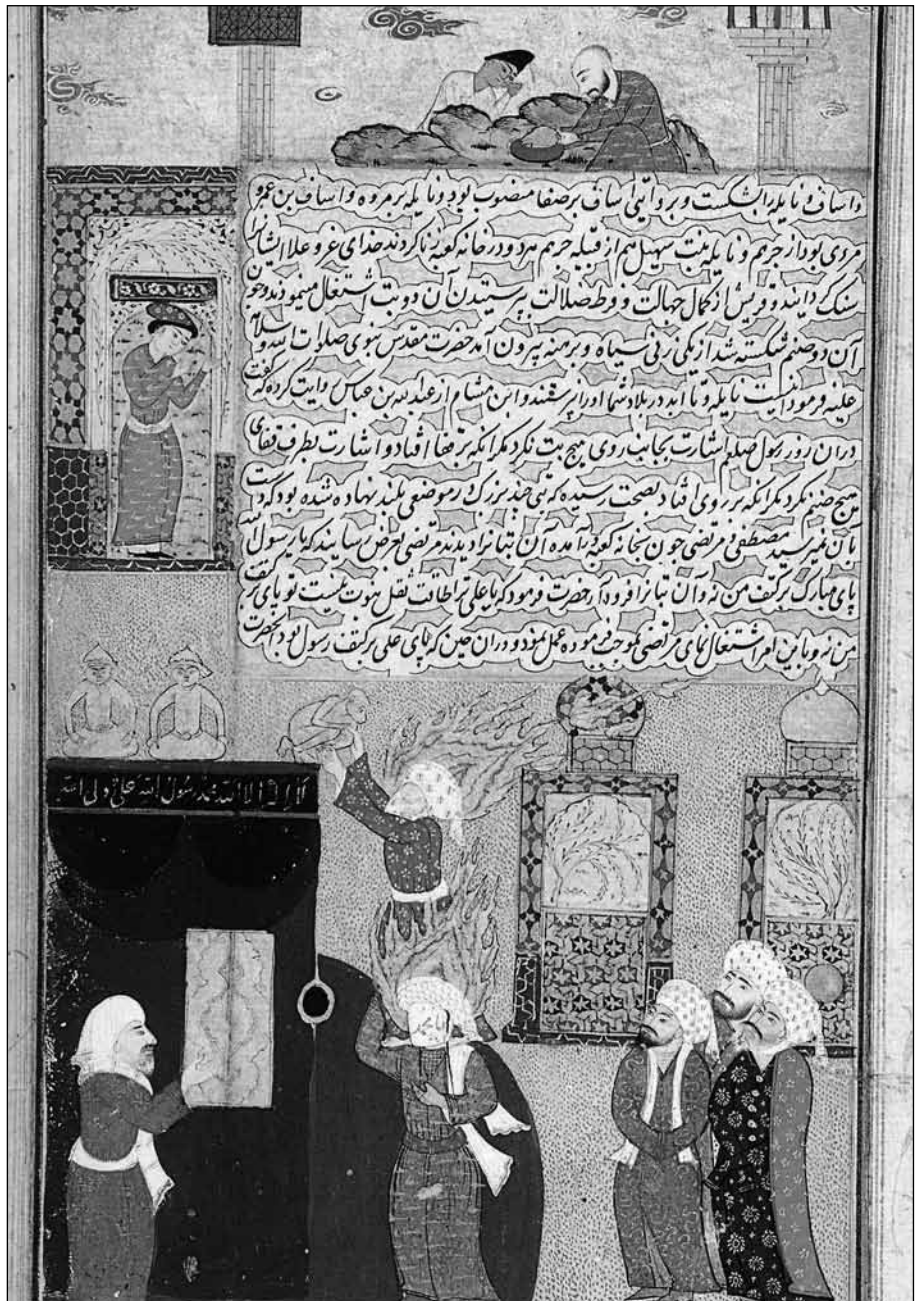 و اساف و نایله را بشکست و بروایتی اساف بر صفا منصوب بود و نایله بر مروه و اساف بن عمرو
مردی بود از جرهم و نایله بنت سهیل هم از قبیله جرهم بود و در خانه کعبه زنا کردند خدای عز و علا ایشانرا
سنک کردانید و قریش از کمال جهالت و فرط ضلالت بپرستیدن آن دو بت اشتغال مینمودند و چون
آن دو صنم شکسته شد از یکی زنی سیاه و برهنه بیرون آمد حضرت مقدس نبوی صلوات الله و سلامه
علیه فرمود اینست نایله و تا ابد در بلاد شما او را نپرستند و ابن هشام از عبد الله بن عباس روایت کرده که گفت
دران روز رسول صلعم اشارت بجانب روی هیچ بت نکرد مکر انکه بر قفا افتاد و اشارت بطرف قفای
هیچ صنم نکرد مکر انکه بر روی افتاد بصحت رسیده که بتی چند بزرک در موضعی بلند نهاده شده بود که دست
بان نمیرسید مصطفی و مرتضی چون بخانه کعبه درآمده آن بتانرا دیدند مرتضی بعرض رسانید که یا رسول الله
پای مبارک بر کتف من نه و آن بتانرا فرود آر حضرت فرمود که یا علی ترا طاقت ثقل نبوت نیست تو پای بر کتف
من نه و باین امر اشتغال نمای مرتضی بموجب فرموده عمل نمود و دران حین که پای علی بر کتف رسول بود انحضرت
لا اله الا الله محمد رسول الله علی ولی الله
یا محمد